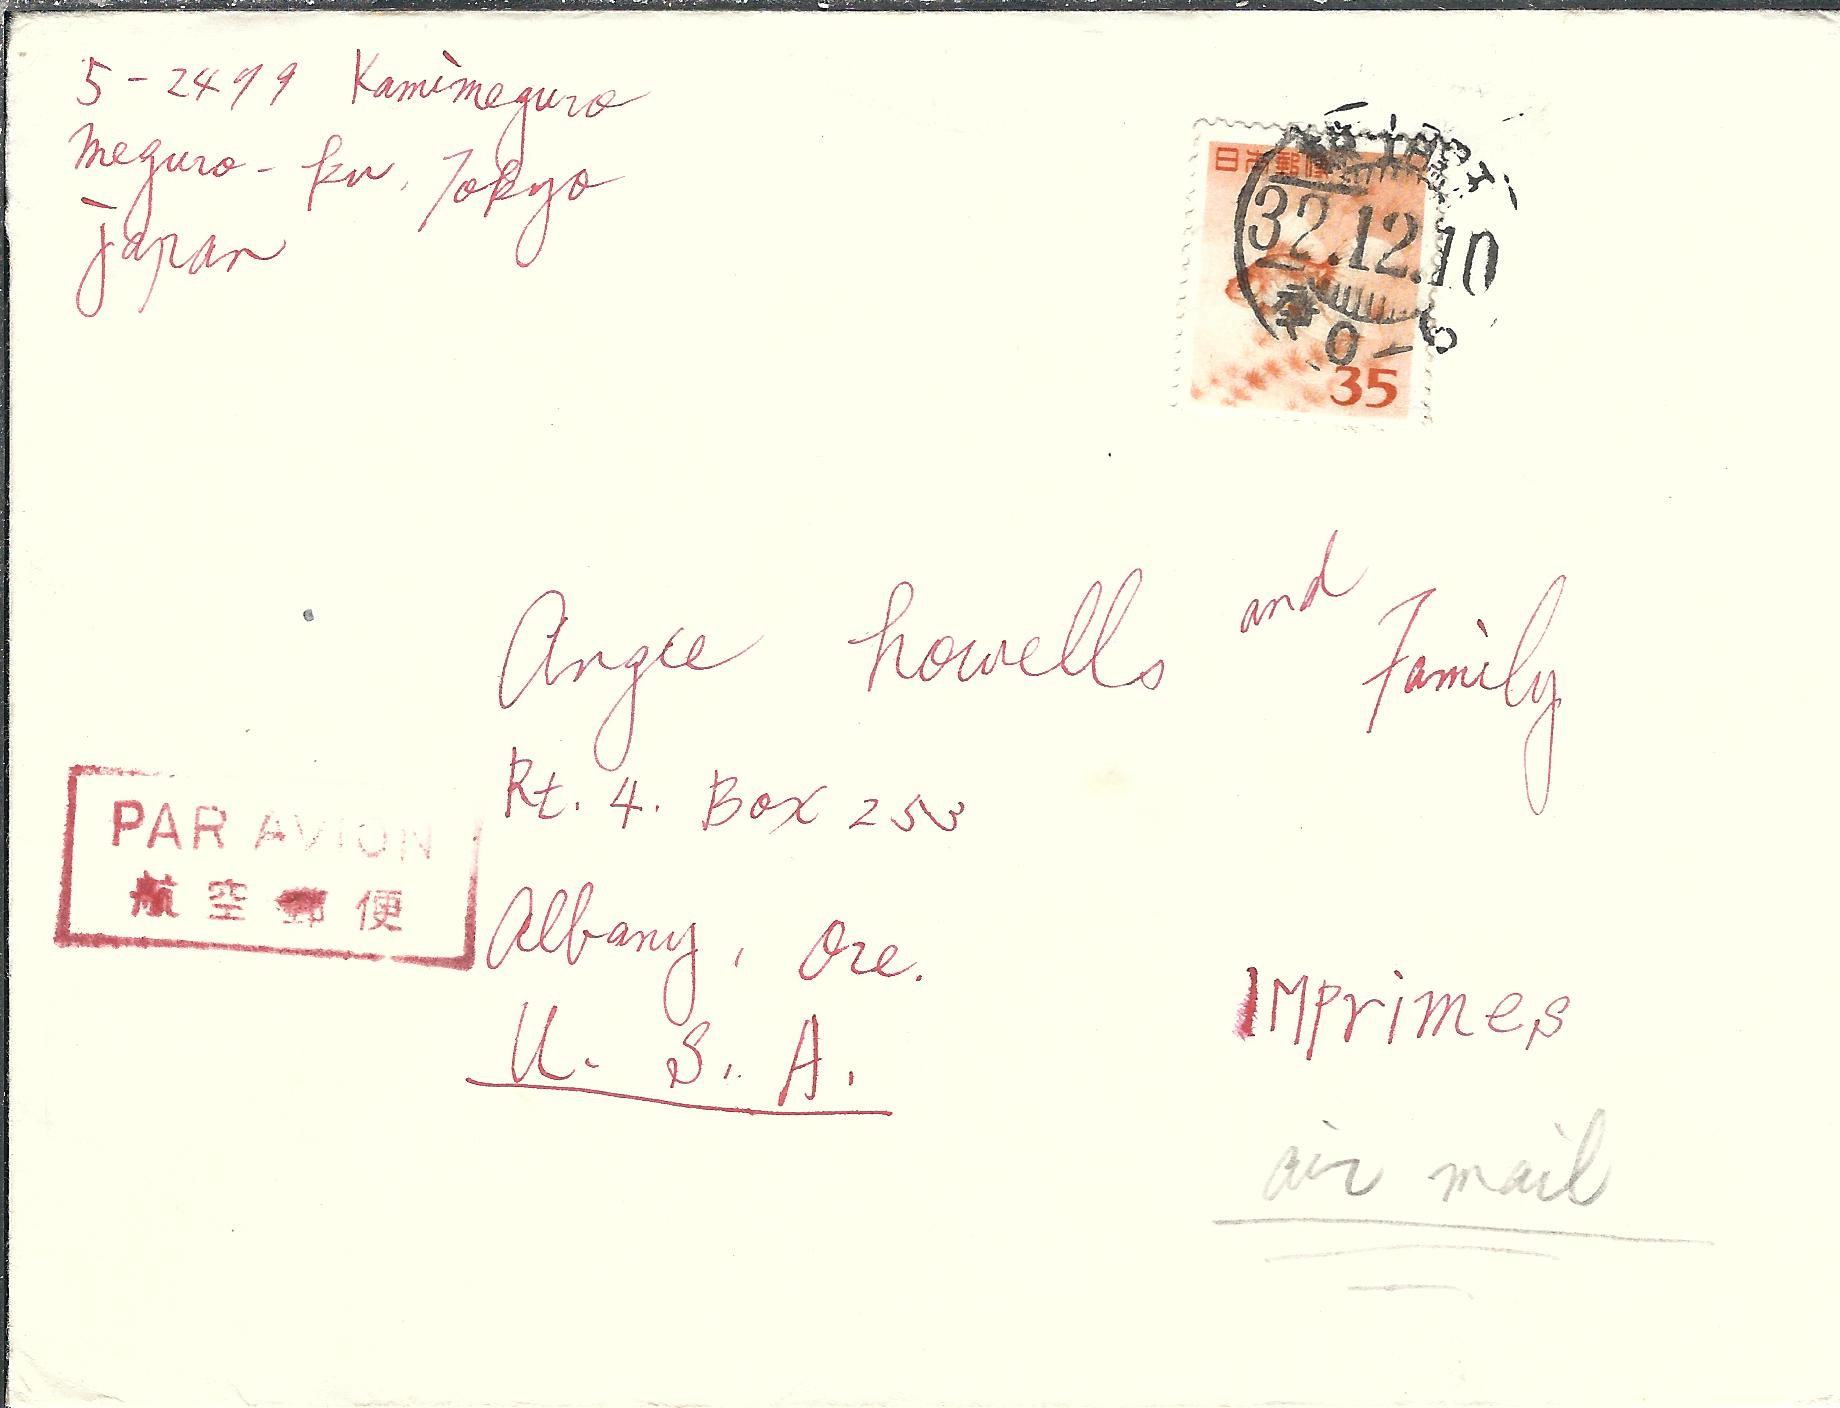 5-2499 Kamimeguro
Meguro-ku, Tokyo
Japan
日本郵便
32.12.10
35
Angie Howells and Family
Rt. 4. Box 253
Albany, Ore.
U. S. A.
PAR AVION
航空郵便
Imprimes
air mail